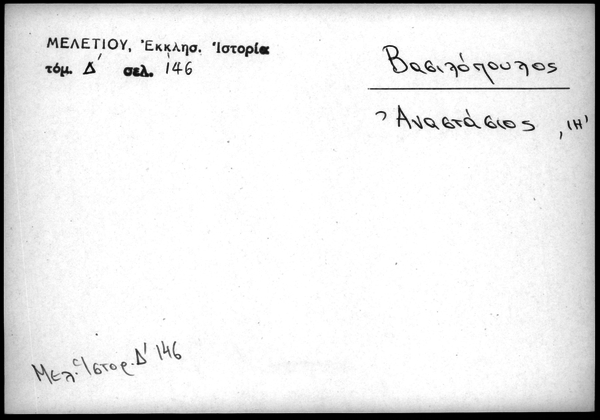 ΜΕΛΕΤΙΟΥ, Ἐκκλησ. Ἱστορία
τόμ. Δ' σελ. 146
Βασιλόπουλος
Ἀναστάσιος, ΙΗ'
Μελ. Ἱστορ. Δ' 146